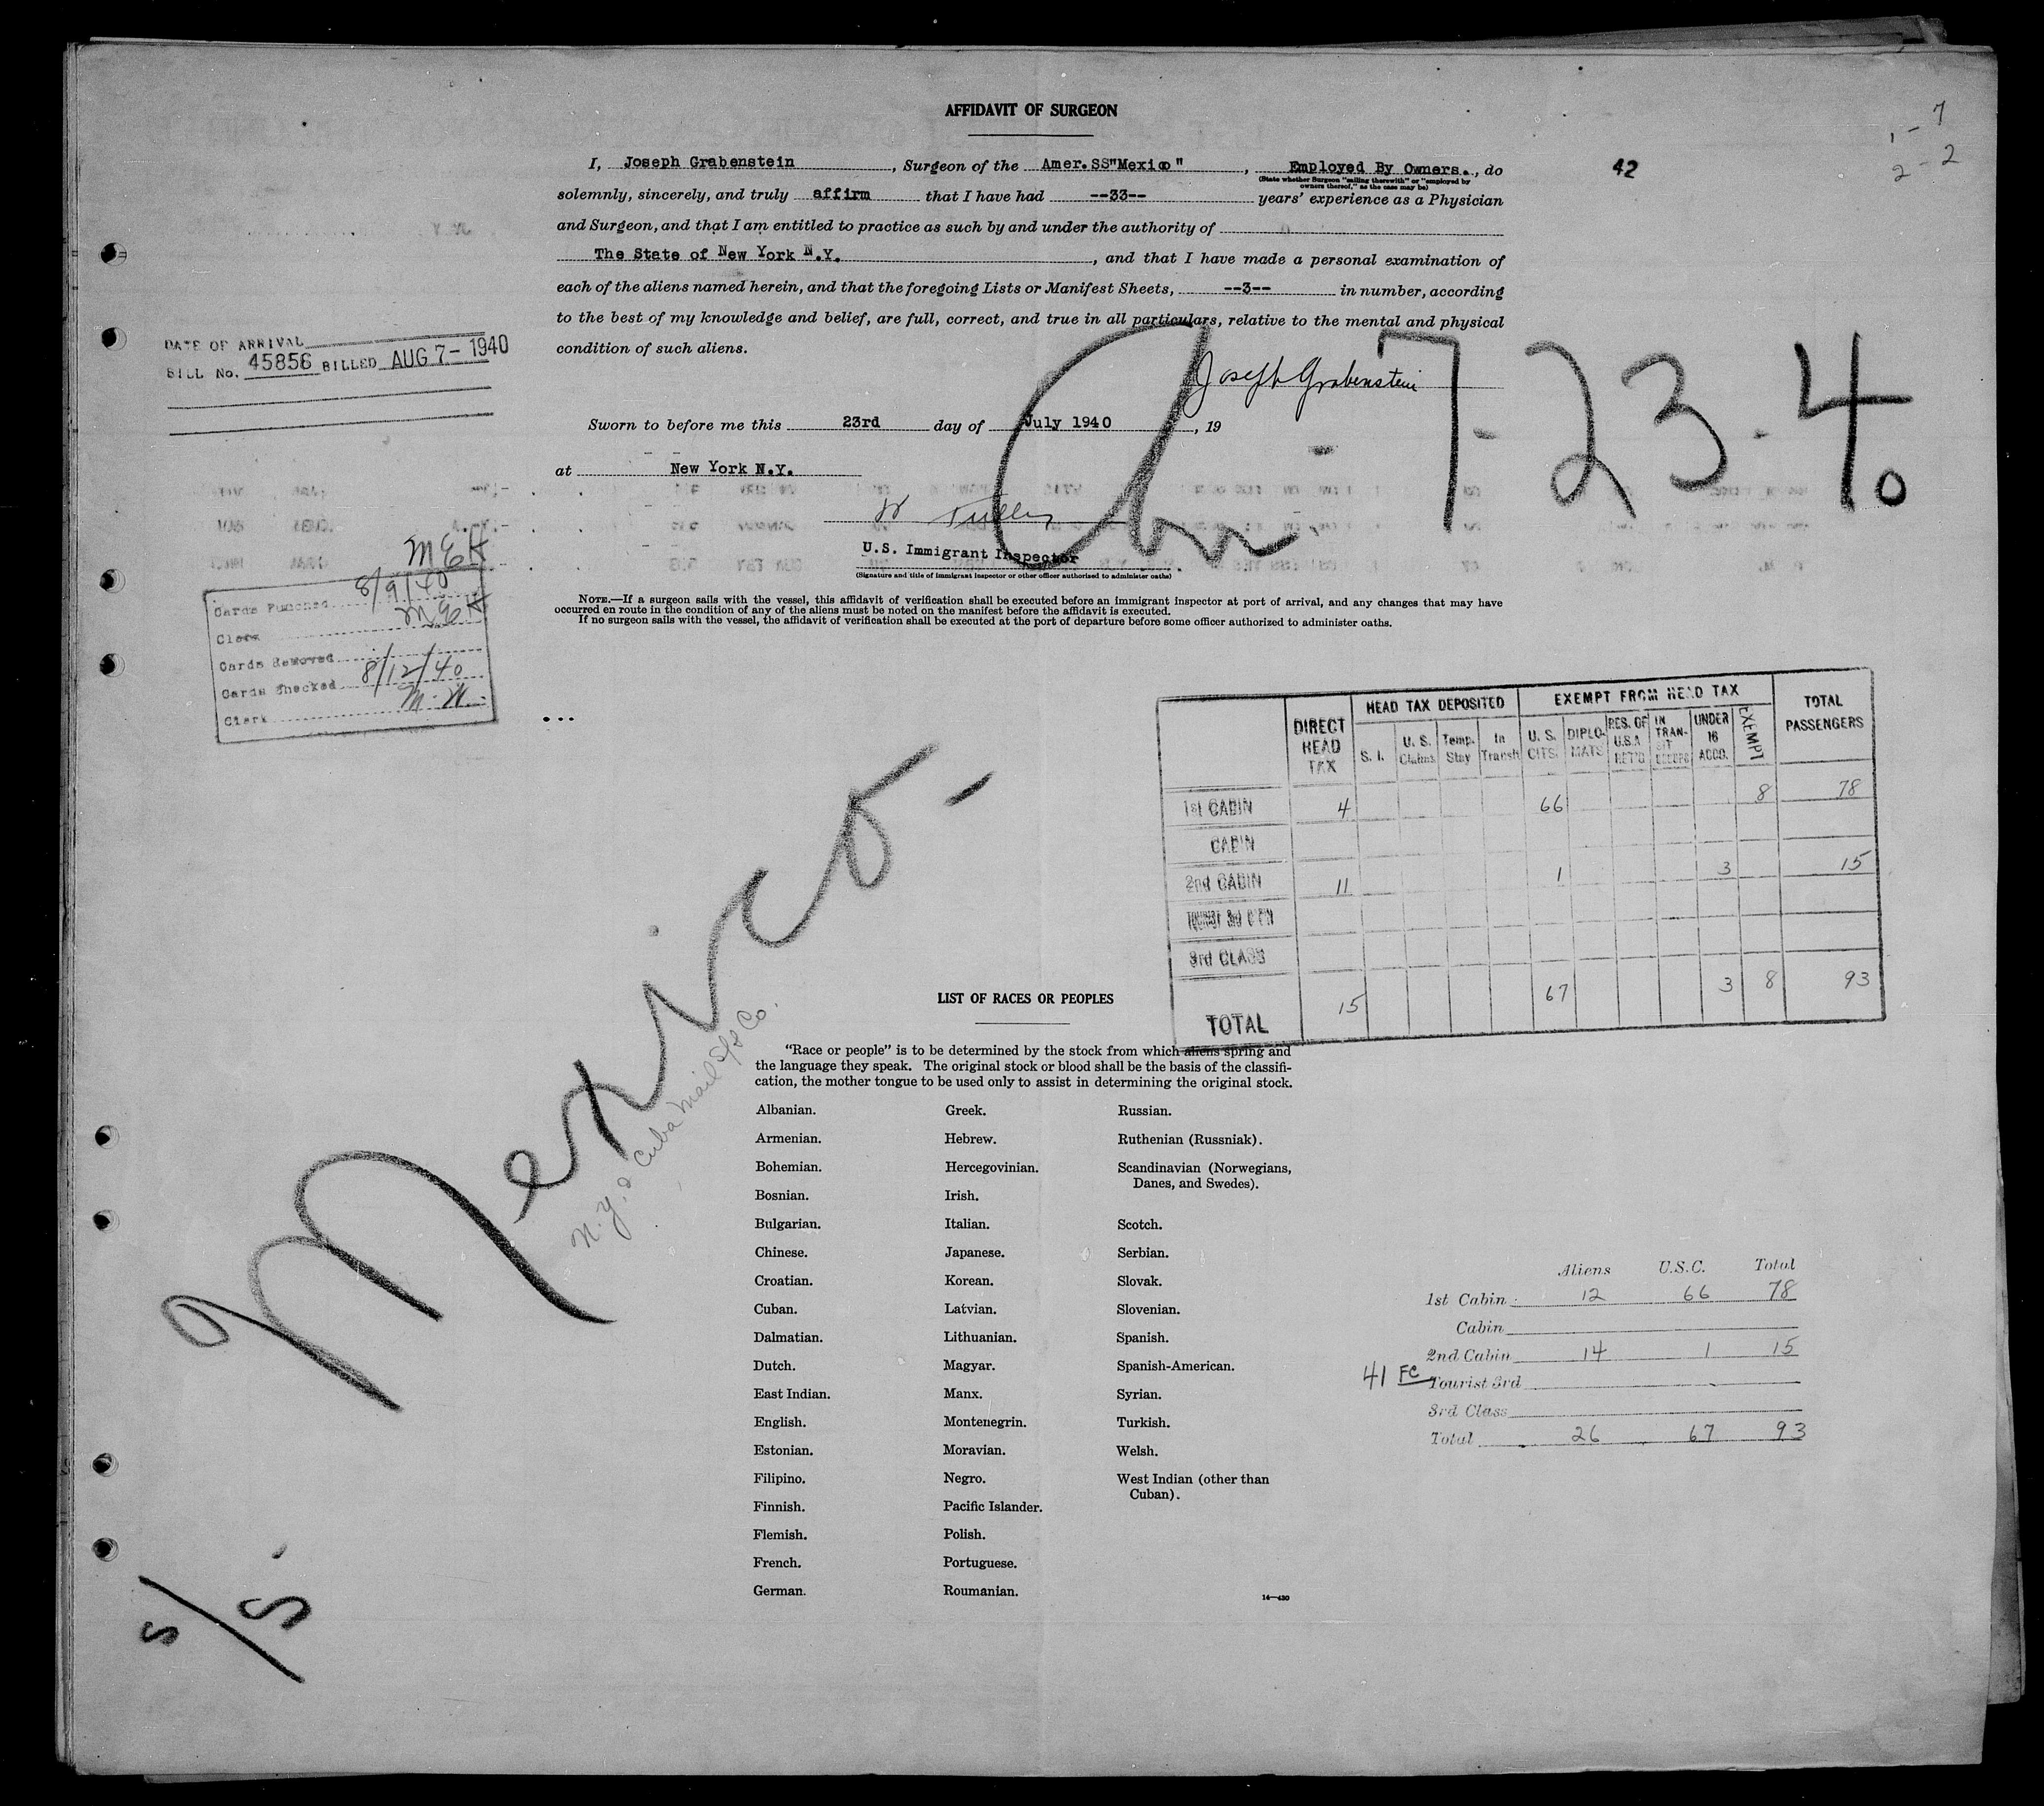 AFFIDAVIT OF SURGEON
1 - 7
2 - 2
42
I, Joseph Grabenstein, Surgeon of the Amer. SS"Mexico", Employed By Owners., do
(State whether Surgeon "sailing therewith" or "employed by
owners thereof," as the case may be)
solemnly, sincerely, and truly affirm that I have had --33-- years' experience as a Physician
and Surgeon, and that I am entitled to practice as such by and under the authority of
The State of New York N.Y., and that I have made a personal examination of
each of the aliens named herein, and that the foregoing Lists or Manifest Sheets, --3-- in number, according
to the best of my knowledge and belief, are full, correct, and true in all particulars, relative to the mental and physical
condition of such aliens.
Joseph Grabenstein
DATE OF ARRIVAL
BILL No. 45856 BILLED AUG 7- 1940
7-23-40
Sworn to before me this 23rd day of July 1940, 19
at New York N.Y.
U.S. Immigrant Inspector.
(Signature and title of immigrant inspector or other officer authorized to administer oaths)
NOTE.—If a surgeon sails with the vessel, this affidavit of verification shall be executed before an immigrant inspector at port of arrival, and any changes that may have
occurred en route in the condition of any of the aliens must be noted on the manifest before the affidavit is executed.
If no surgeon sails with the vessel, the affidavit of verification shall be executed at the port of departure before some officer authorized to administer oaths.
MEK
Cards Punched 8/9/40
Clerk MEK
Cards Removed
Cards Checked 8/12/40
Clerk M. W.
DIRECT HEAD TAX
HEAD TAX DEPOSITED
EXEMPT FROM HEAD TAX
TOTAL PASSENGERS
S. I. U. S. Claims Temp. Stay In Transit U. S. CITS. DIPLO-MATS RES. OF U.S.A. RET'D IN TRAN-SIT UNDER 16 ACCO. EXEMPT
1st CABIN 4 66 8 78
CABIN
2nd CABIN 11 1 3 15
TOURIST 3rd CABIN
3rd CLASS
TOTAL 15 67 3 8 93
Mexico -
N.Y. & Cuba Mail S/S Co.
S/S.
LIST OF RACES OR PEOPLES
"Race or people" is to be determined by the stock from which aliens spring and
the language they speak. The original stock or blood shall be the basis of the classifi-
cation, the mother tongue to be used only to assist in determining the original stock.
Albanian.
Armenian.
Bohemian.
Bosnian.
Bulgarian.
Chinese.
Croatian.
Cuban.
Dalmatian.
Dutch.
East Indian.
English.
Estonian.
Filipino.
Finnish.
Flemish.
French.
German.
Greek.
Hebrew.
Hercegovinian.
Irish.
Italian.
Japanese.
Korean.
Latvian.
Lithuanian.
Magyar.
Manx.
Montenegrin.
Moravian.
Negro.
Pacific Islander.
Polish.
Portuguese.
Roumanian.
Russian.
Ruthenian (Russniak).
Scandinavian (Norwegians,
Danes, and Swedes).
Scotch.
Serbian.
Slovak.
Slovenian.
Spanish.
Spanish-American.
Syrian.
Turkish.
Welsh.
West Indian (other than
Cuban).
14—430
Aliens U.S.C. Total
1st Cabin 12 66 78
Cabin
2nd Cabin 14 1 15
41 FC Tourist 3rd
3rd Class
Total 26 67 93